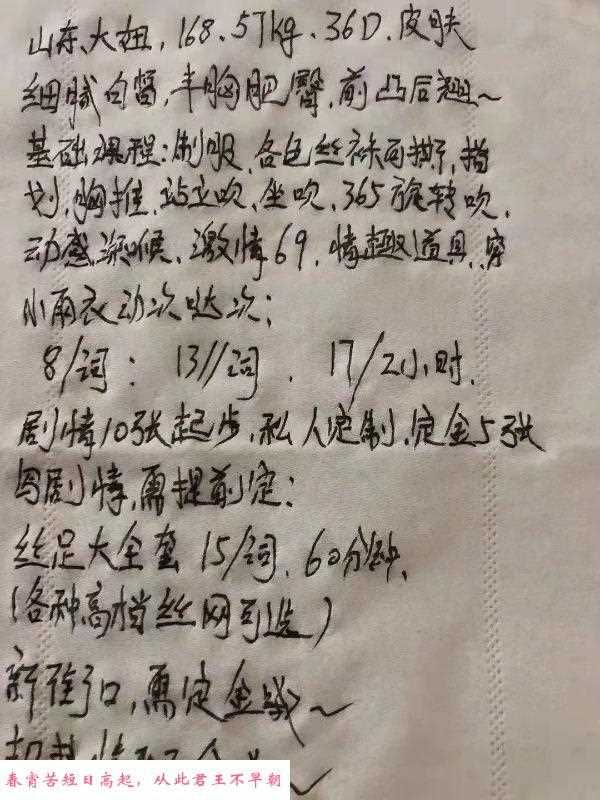 山东、大妞,168.57kg.36D.皮肤
细腻白皙,丰胸肥臀,前凸后翘~
基础课程:制服,各色丝袜可撕,指
划,胸推,站立吹,坐吹,365旋转吹,
动感深喉,激情69,情趣道具,穿
小雨衣动次哒次:
8/词: 13//词. 17/2小时.
剧情10张起步,私人定制,定金5张
写剧情,需提前定:
丝足大全套 15/词.60分钟,
(各种高档丝网可选)
新街口,需定金哦~
春宵苦短日高起,从此君王不早朝